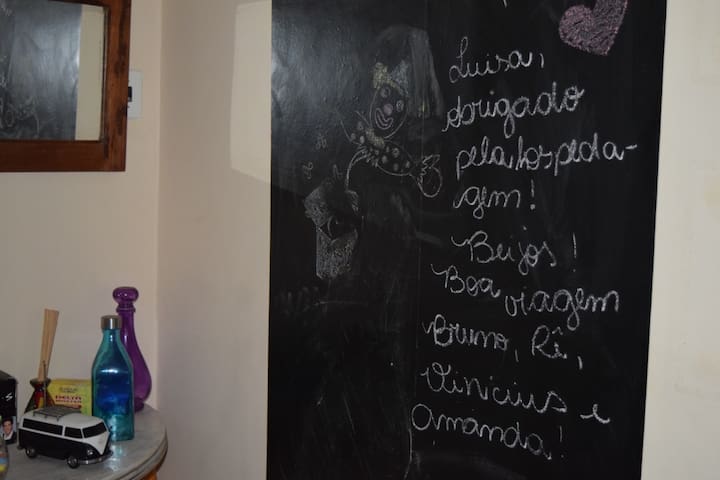 Luisa,
obrigado
pela hospeda-
gem!
Beijos!
Boa viagem
Bruno, Rê,
Vinícius e
Amanda!